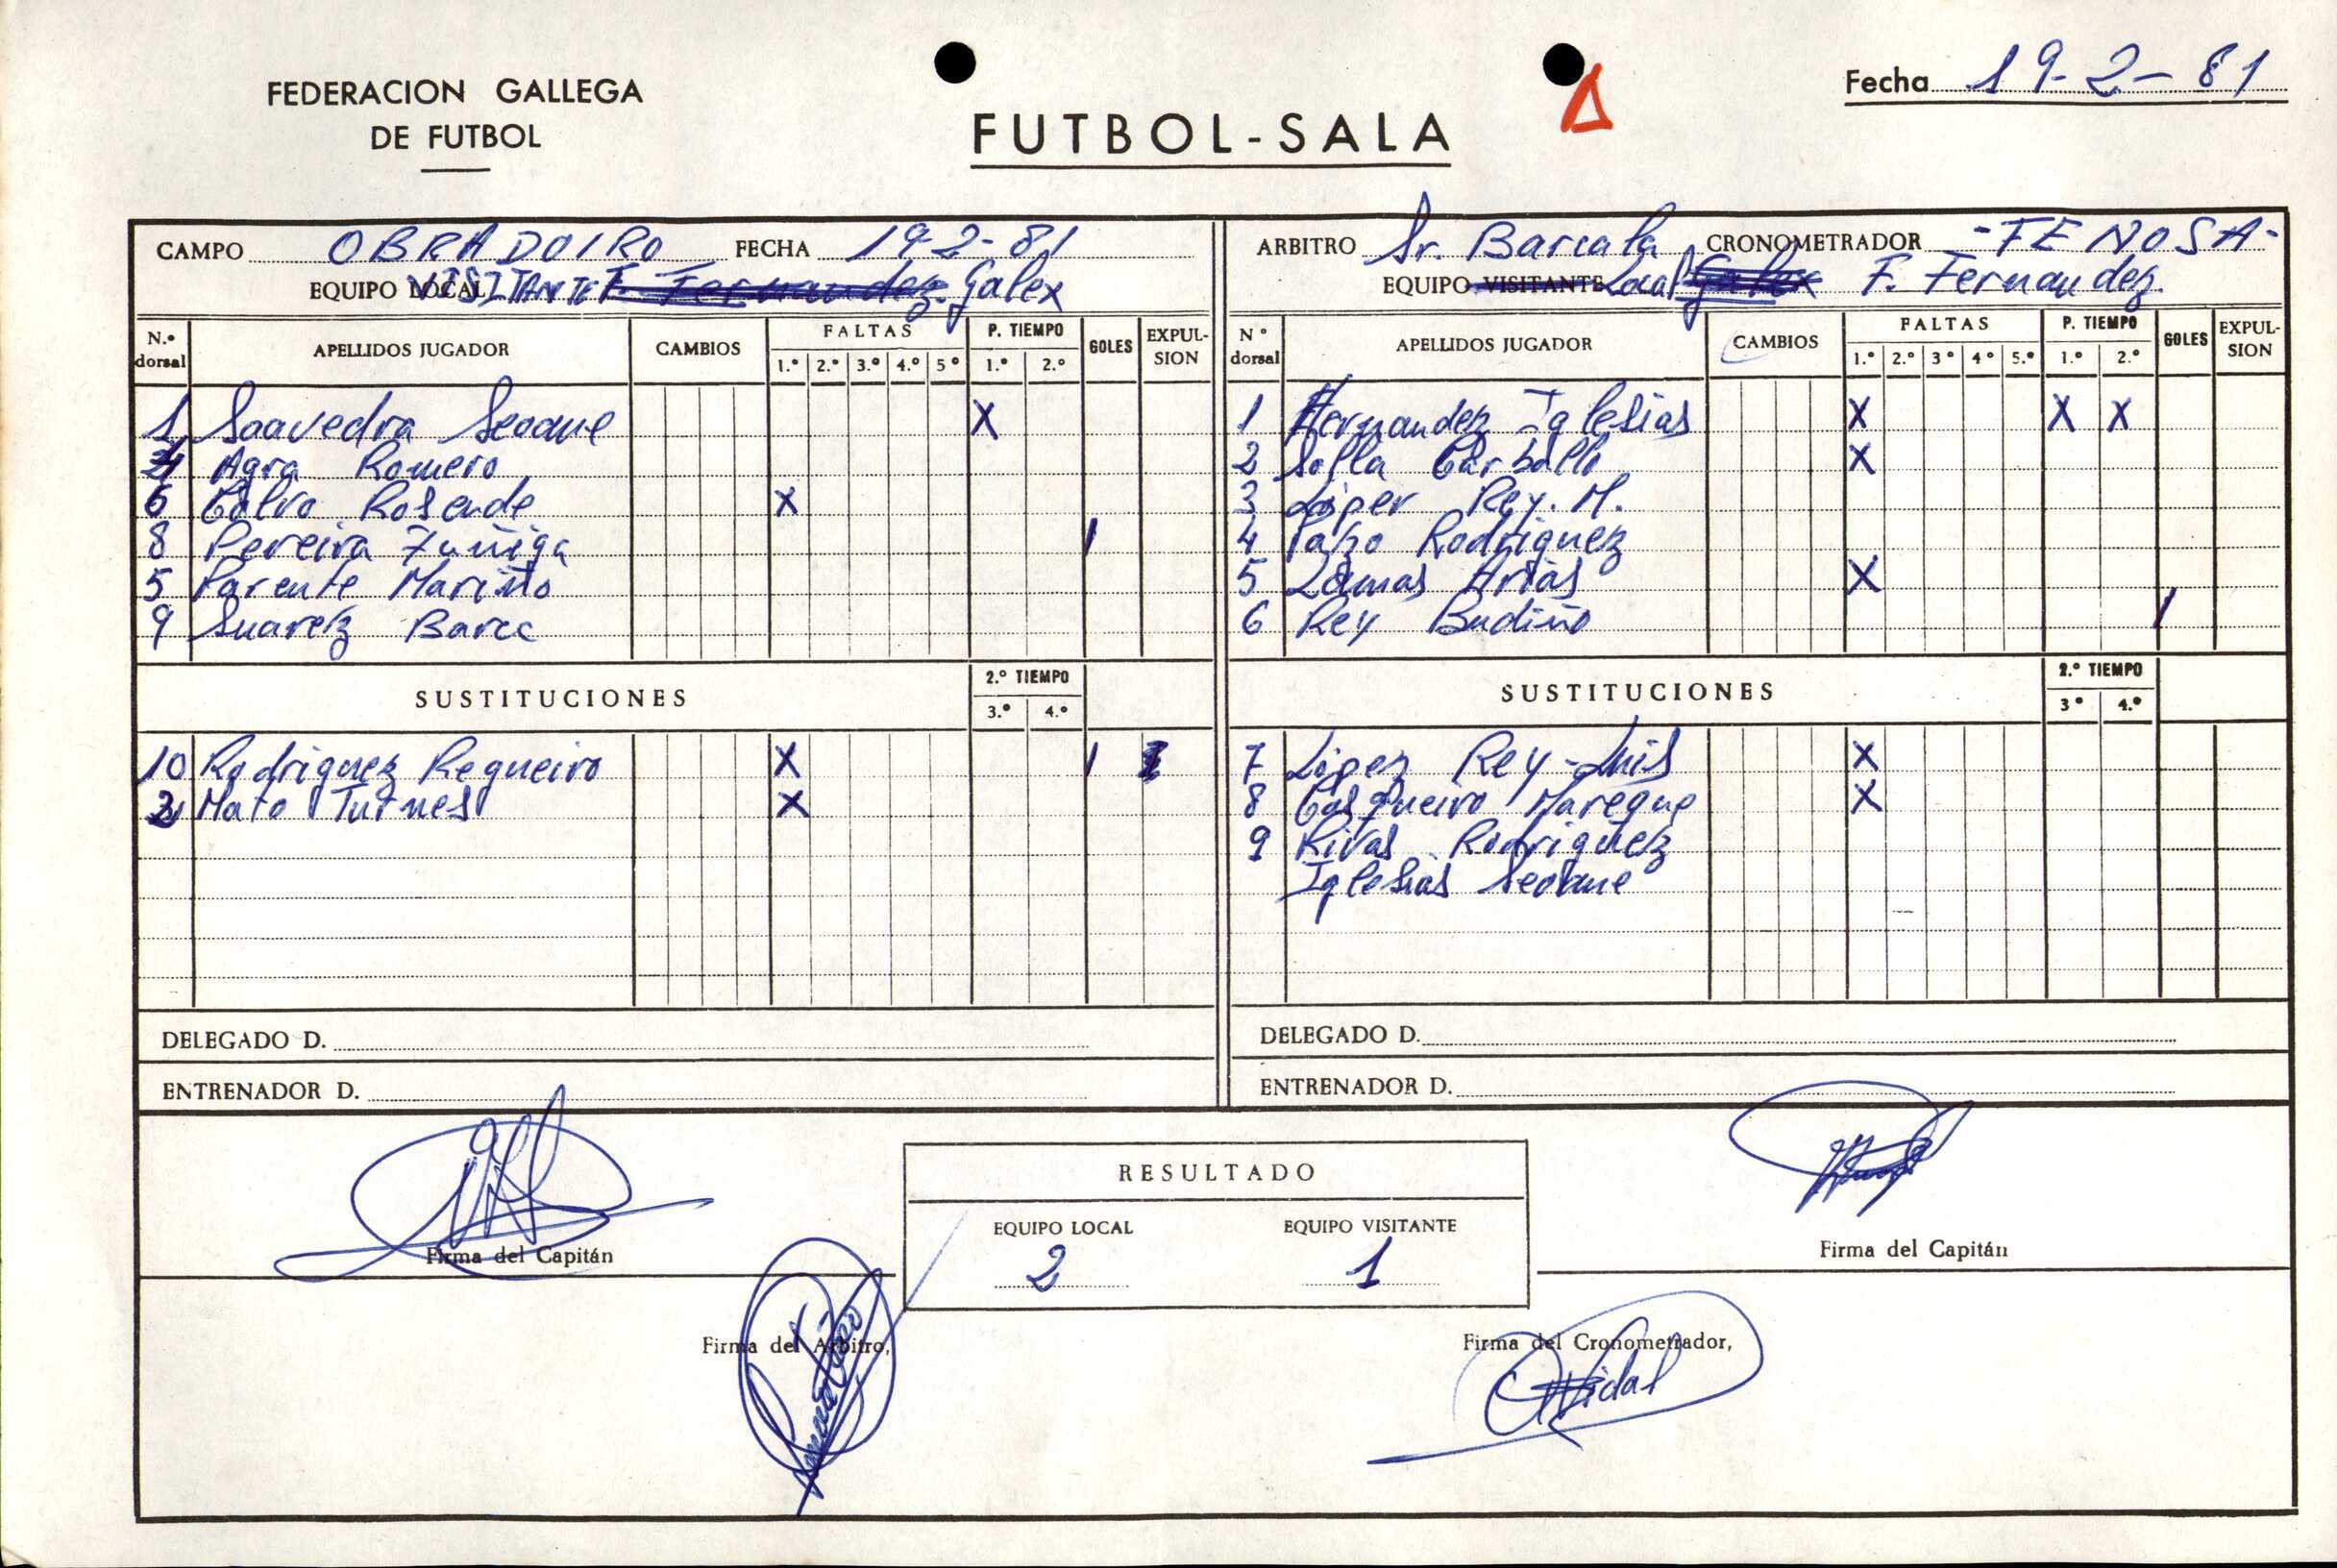 FEDERACION GALLEGA
DE FUTBOL
FUTBOL-SALA
Fecha 19-2-81
CAMPO OBRADOIRO FECHA 19-2-81
EQUIPO LOCAL VISITANTE F. Fernandez. Galex
N.º dorsal APELLIDOS JUGADOR CAMBIOS FALTAS 1.º 2.º 3.º 4.º 5º P. TIEMPO 1.º 2.º GOLES EXPULSION
1 Saavedra Seoane X
4 Agra Romero
6 Calvo Rosende X
8 Pereira Zuñiga 1
5 Parente Mariño
9 Suarez Barca
SUSTITUCIONES 2.º TIEMPO 3.º 4.º
10 Rodriguez Regueiro X 1
2 Mato Turnes X
DELEGADO D.
ENTRENADOR D.
Firma del Capitán
ARBITRO Sr. Barcala CRONOMETRADOR -FENOSA-
EQUIPO VISITANTE Local Galex F. Fernandez.
Nº dorsal APELLIDOS JUGADOR CAMBIOS FALTAS 1.º 2.º 3º 4º 5.º P. TIEMPO 1.º 2.º GOLES EXPULSION
1 Hernandez Iglesias X X X
2 Solla Carballo X
3 López Rey. M.
4 Pazo Rodriguez
5 Lamas Arias X
6 Rey Budiño 1
SUSTITUCIONES 2.º TIEMPO 3º 4.º
7 López Rey-Luis X
8 X
9 Rivas Rodriguez
Iglesias Seoane
DELEGADO D.
ENTRENADOR D.
Firma del Capitán
RESULTADO
EQUIPO LOCAL EQUIPO VISITANTE
2 1
Firma del Arbitro,
Firma del Cronometrador,
Vidal